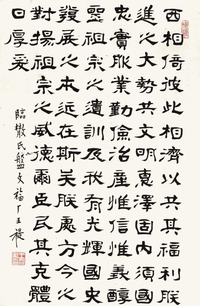 西相倚彼此相濟以共其福利朕
進之大勢共文明惠澤固內須國
忠實服業勤儉治產惟信惟義醇
聖祖宗之遺訓及我有光輝國史
發展之本近在斯矣朕處方今之
對揚祖宗之威德爾臣民其克體
日厚爰
臨散氏盤文福厂王禔